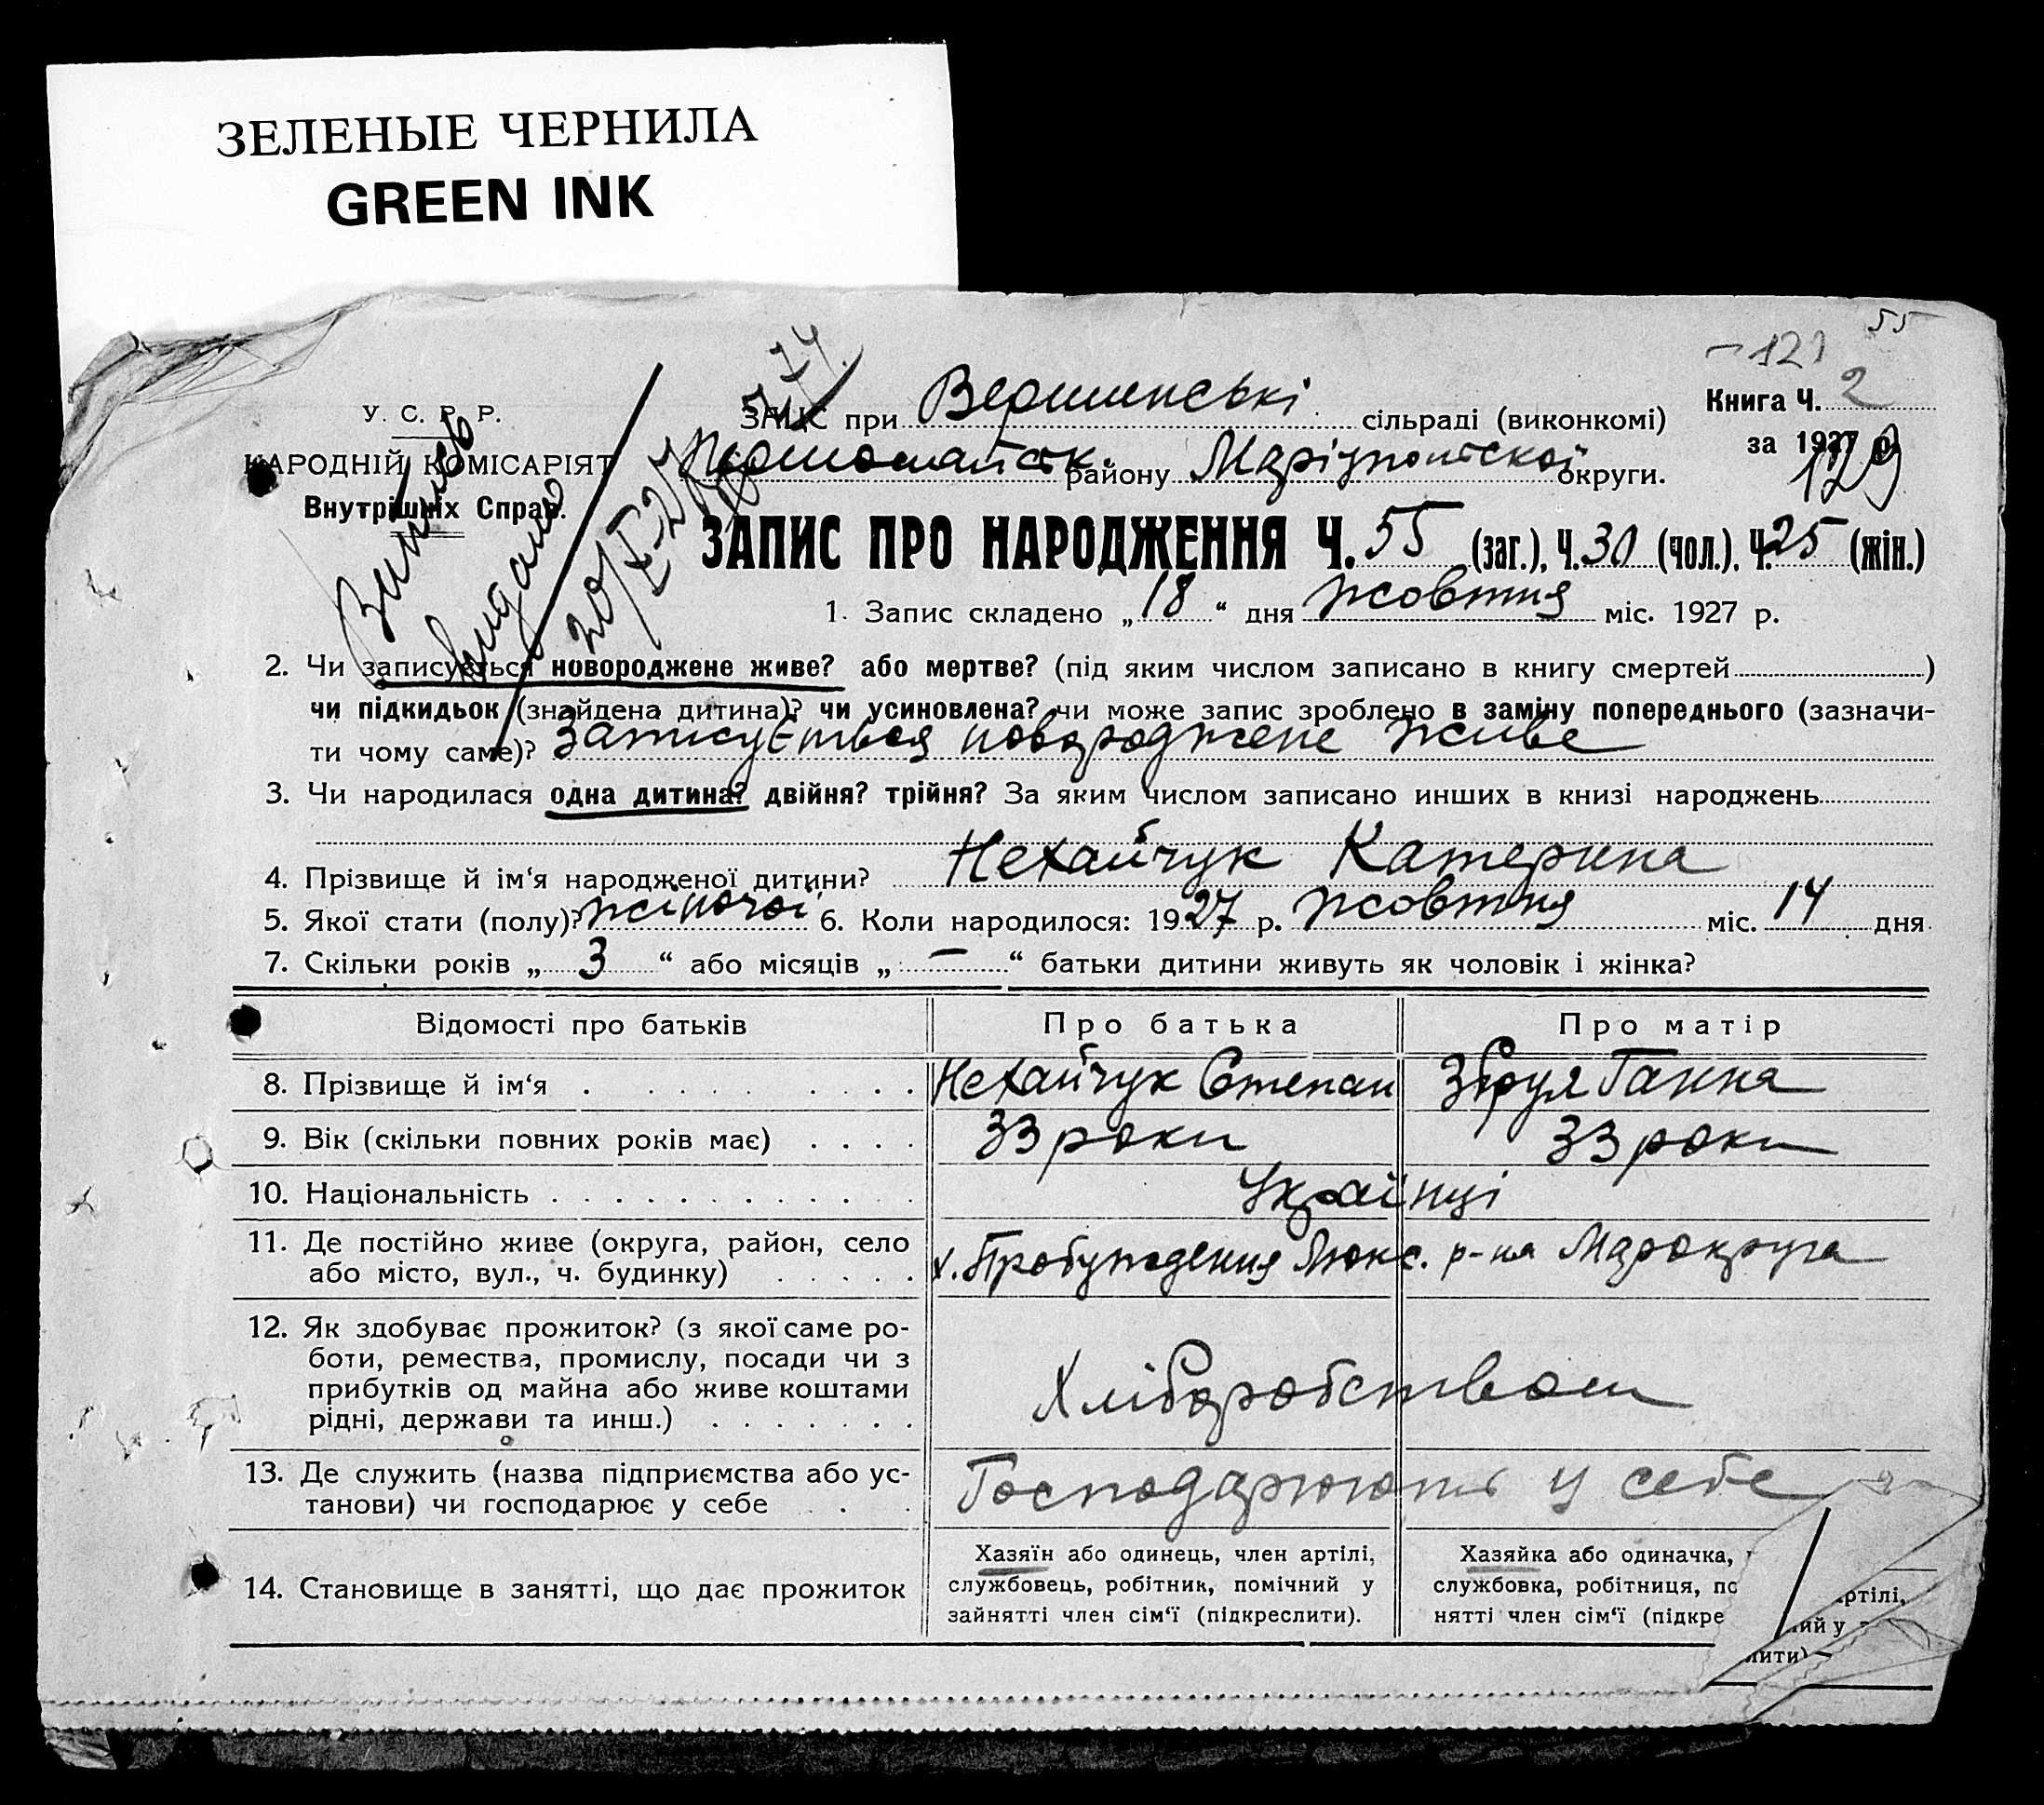 ЗЕЛЕНЫЕ ЧЕРНИЛА
GREEN INK
55
121
У. С. Р. Р.
НАРОДНІЙ КОМІСАРІЯТ
Внутрішніх Справ.
Витяг
видано
ЗАЦС при Вершинські сільраді (виконкомі)
Книга Ч. 2
за 1927 р.
129
Першомайськ. району Маріупольской округи.
ЗАПИС ПРО НАРОДЖЕННЯ Ч. 55 (заг.), Ч. 30 (чол.), Ч. 25 (жін.)
1. Запис складено „18“ дня жовтня міс. 1927 р.
2. Чи записується новороджене живе? або мертве? (під яким числом записано в книгу смертей)
чи підкидьок (знайдена дитина)? чи усиновлена? чи може запис зроблено в заміну попереднього (зазначи-
ти чому саме)? Записується новороджене живе
3. Чи народилася одна дитина? двійня? трійня? За яким числом записано инших в книзі народжень
4. Прізвище й ім‘я народженої дитини? Нехайчук Катерина
5. Якої стати (полу)? жіночої 6. Коли народилося: 1927 р. жовтня міс. 14 дня
7. Скільки років „3“ або місяців „—“ батьки дитини живуть як чоловік і жінка?
Відомості про батьків Про батька Про матір
8. Прізвище й ім‘я Нехайчук Степан Ганна
9. Вік (скільки повних років має) 33 роки 33 роки
10. Національність Українці
11. Де постійно живе (округа, район, село
або місто, вул., ч. будинку) х. Пробуждения Люкс. р-на Марокруга
12. Як здобуває прожиток? (з якої саме ро-
боти, ремества, промислу, посади чи з
прибутків од майна або живе коштами
рідні, держави та инш.) Хліборобством
13. Де служить (назва підприємства або ус-
танови) чи господарює у себе Господарюють у себе
14. Становище в занятті, що дає прожиток
Хазяїн або одинець, член артілі,
службовець, робітник, помічний у
зайнятті член сім‘ї (підкреслити).
Хазяйка або одиначка,
службовка, робітниця, по
нятті член сім‘ї (підкре
ртілі,
ий у
лити)